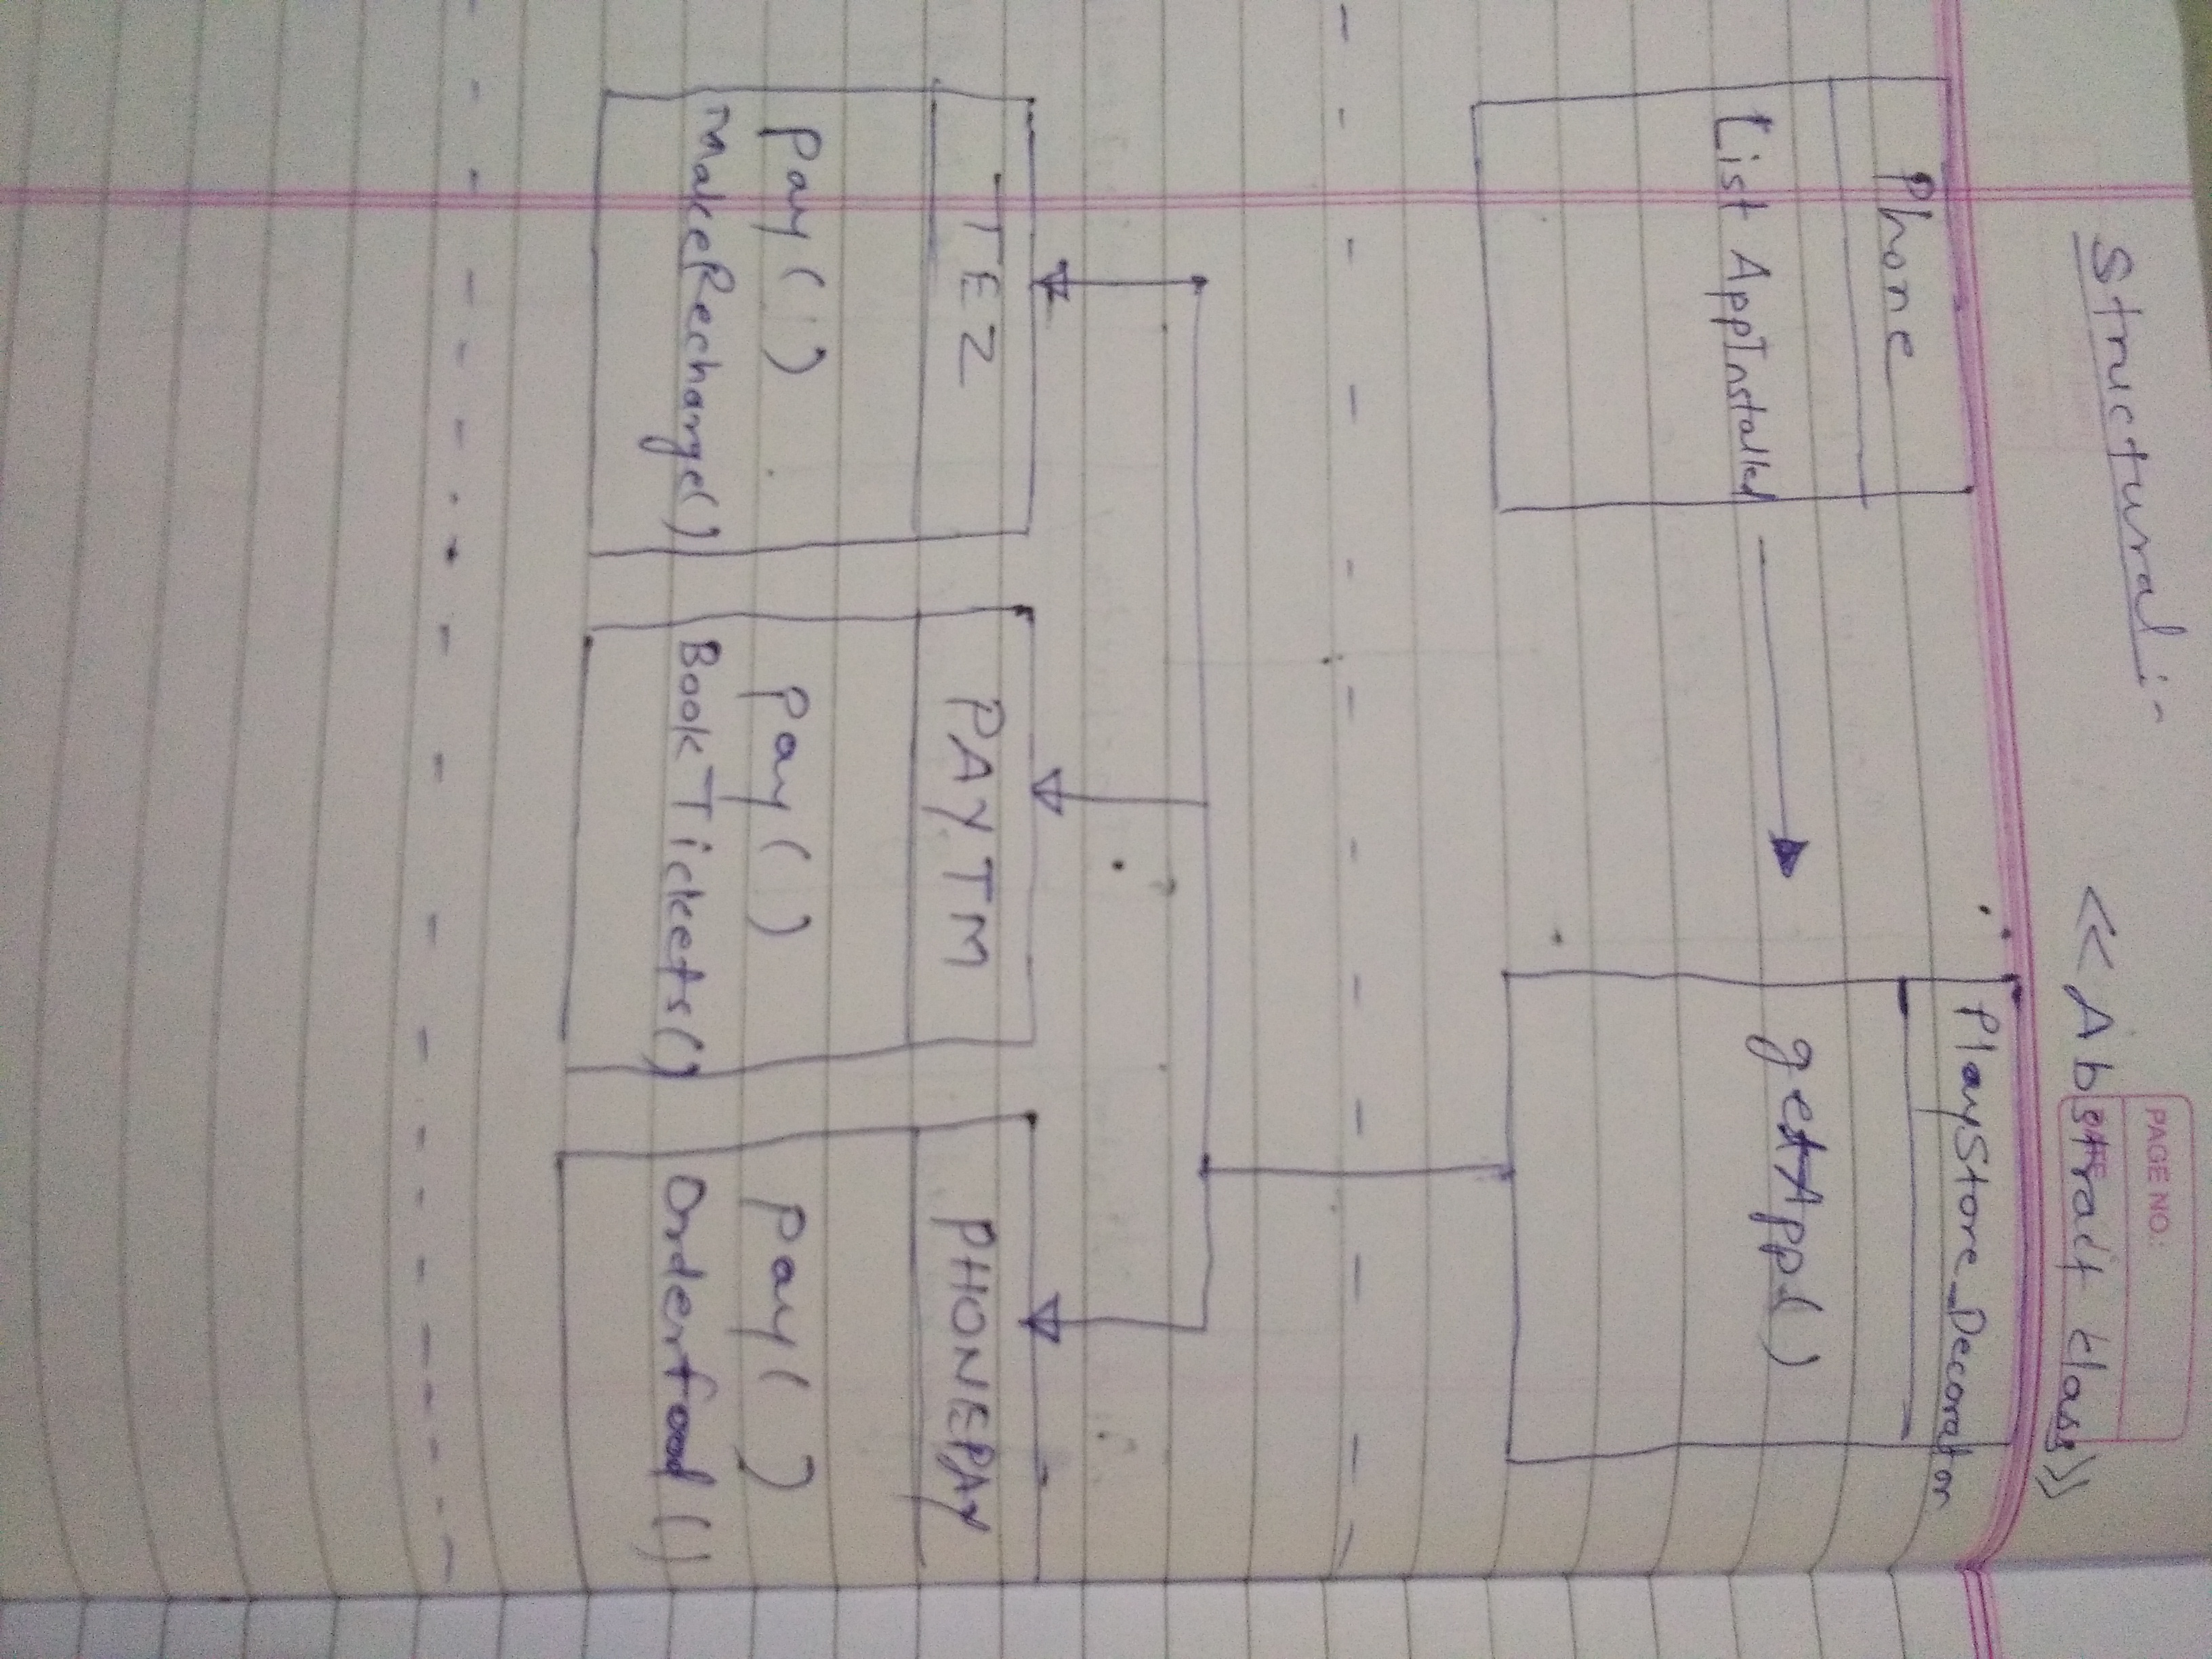 Structural :-
<< Abstract Class >>
PAGE NO.:
DATE
Phone
List AppInstalled
PlayStore_Decorator
getApp()
TEZ
Pay()
MakeRecharge()
PAYTM
Pay()
BookTickets()
PHONEPAY
Pay()
Orderfood()